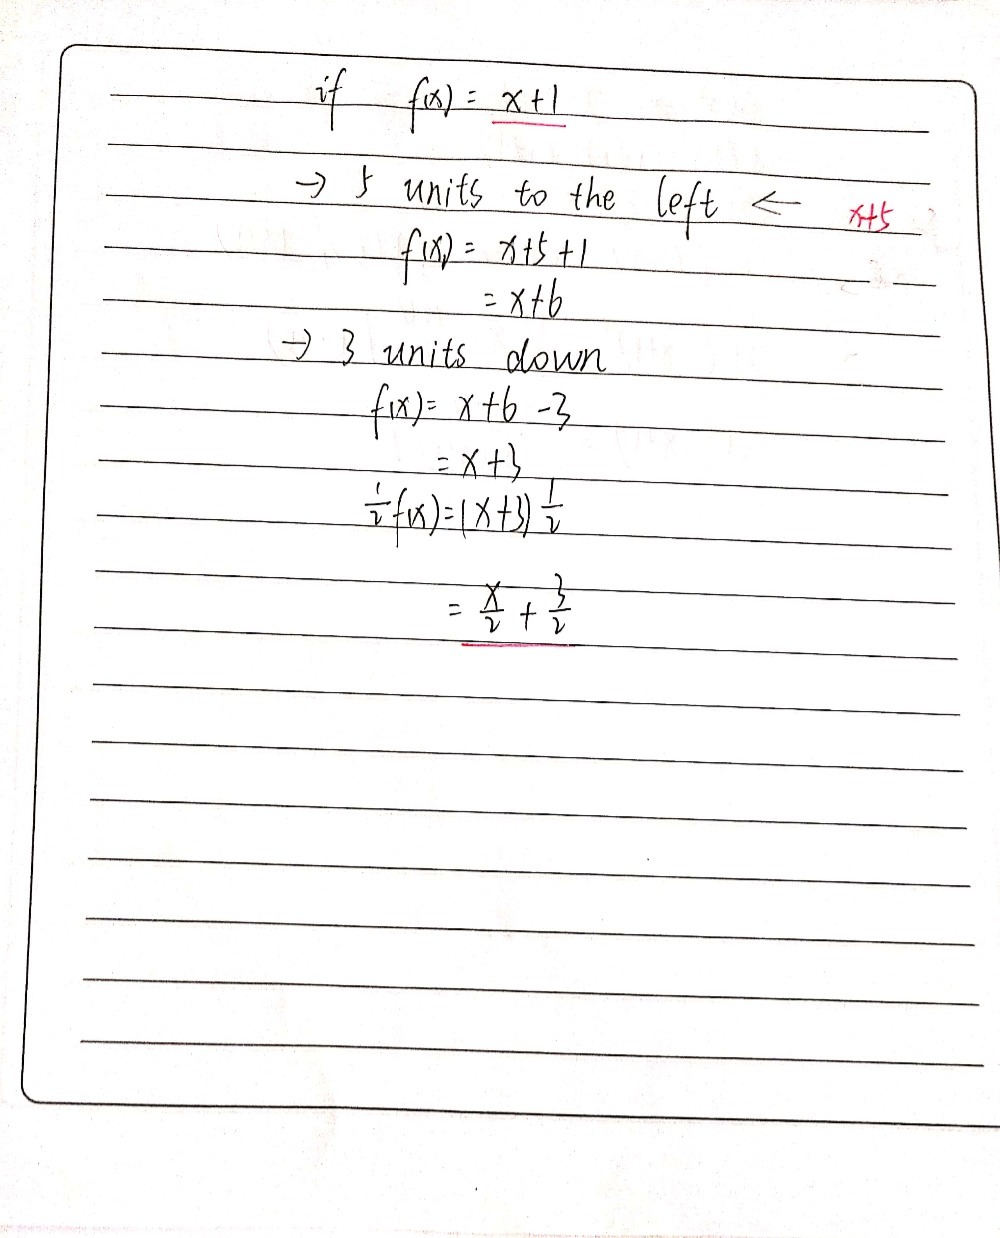 if f(x) = x+1
→ 5 units to the left ← x+5
f(x) = x+5+1
= x+6
→ 3 units down
f(x) = x+6-3
= x+3
½f(x)=(x+3)½
= x/2 + 3/2